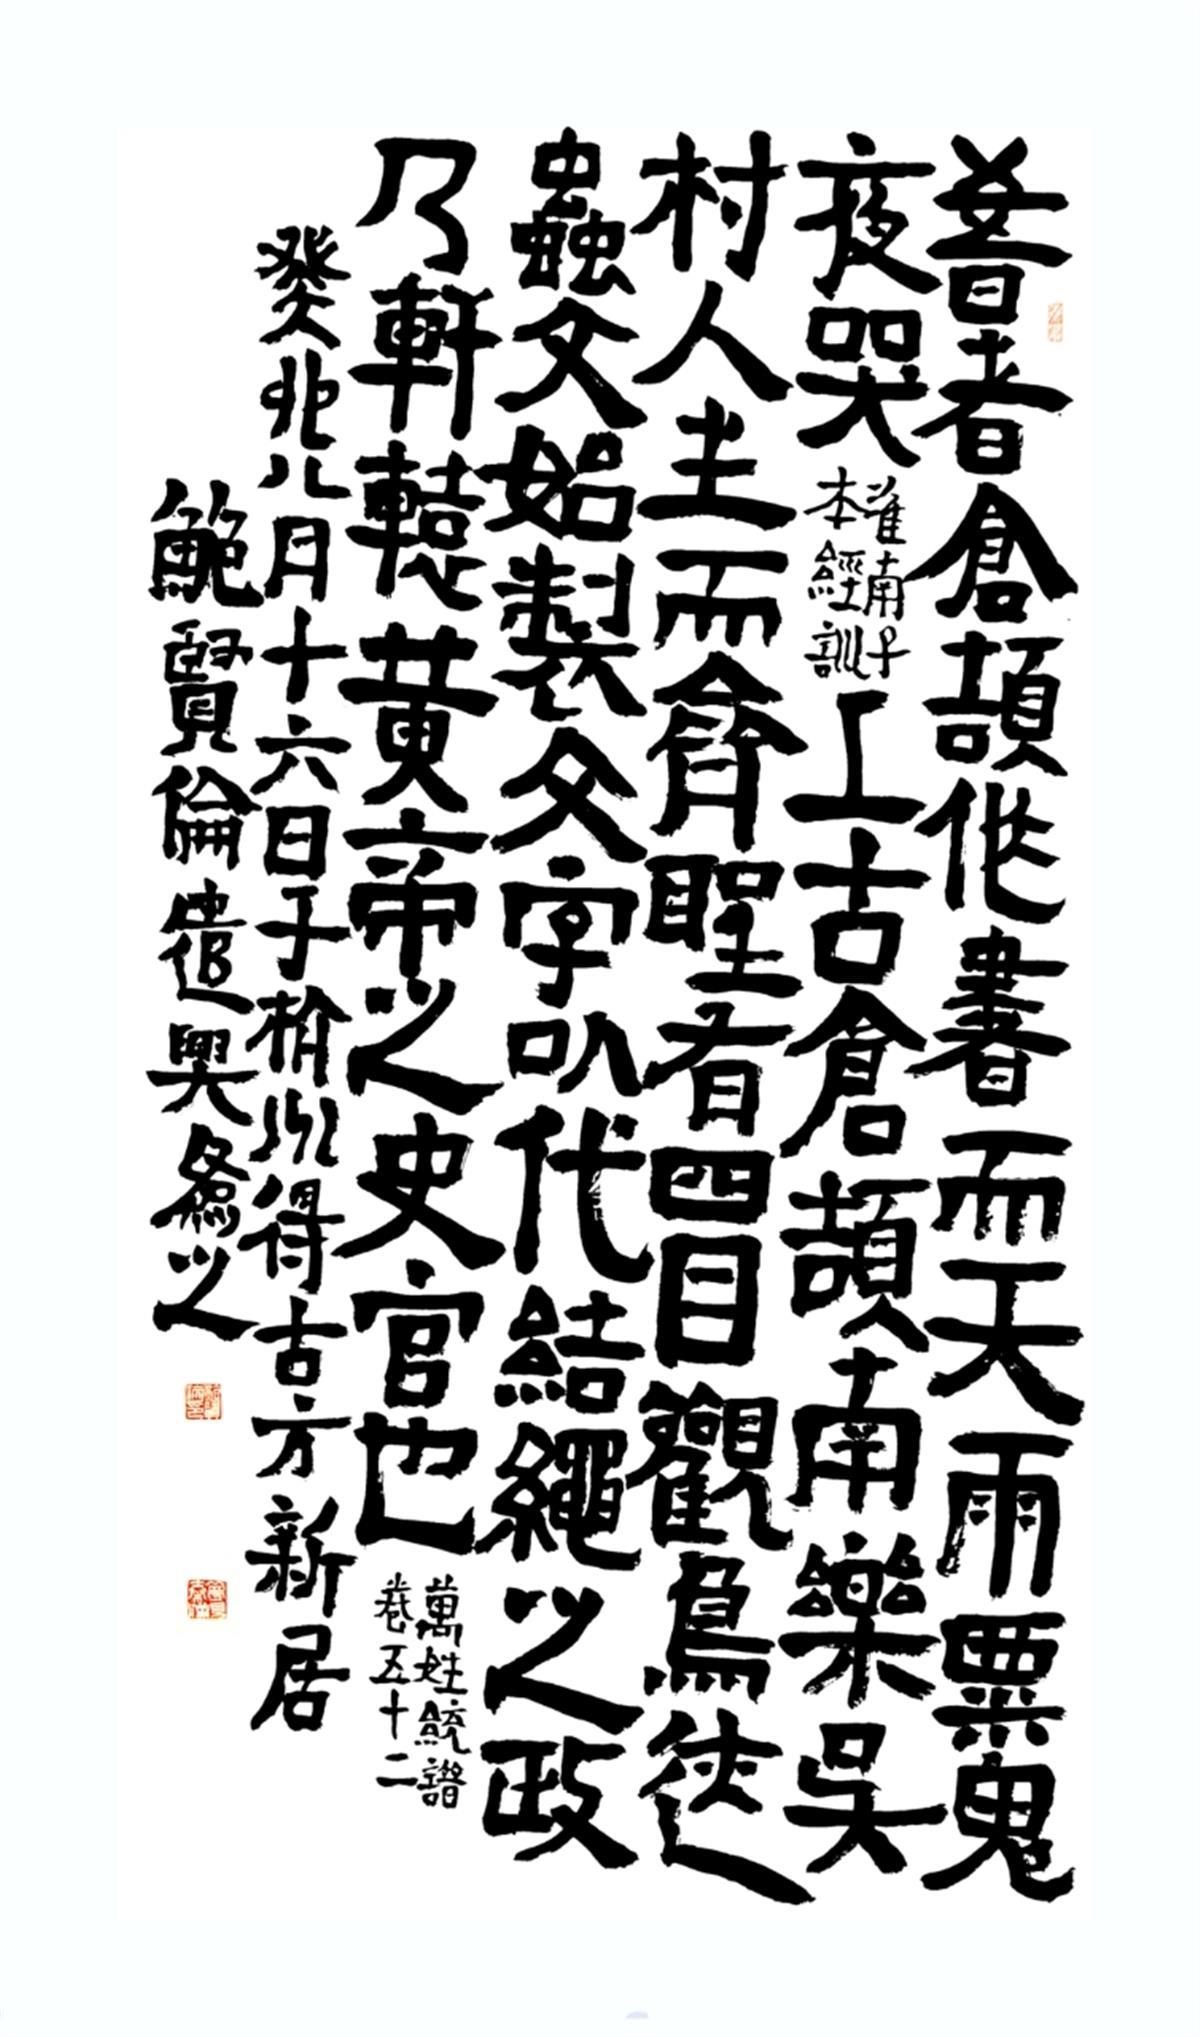 昔者倉頡作書而天雨粟鬼
夜哭
淮南子
本經訓
上古倉頡南樂吳
村人生而齊聖有四目觀鳥迹
蟲文始製文字以代結繩之政
乃軒轅黃帝之史官也
萬姓統譜
卷五十二
癸卯八月十六日于榆州得古方新居
鮑賢倫遣興為之